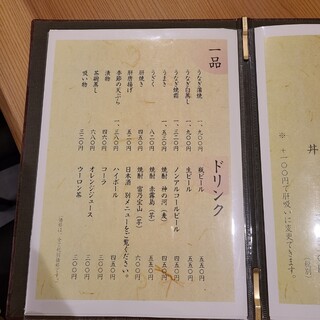 一品
うなぎ蒲焼 一、九〇〇円
うなぎ白蒸し 一、九〇〇円
うなぎ焼霜 一、三二〇円
うまき 一、五三〇円
うざく 八二〇円
肝焼き 四五〇円
肝唐揚げ 五〇〇円
季節の天ぷら 一、三八〇円
漬物 四六〇円
茶碗蒸し 六八〇円
吸い物 三二〇円
ドリンク
瓶ビール 五五〇円
生ビール 五五〇円
ノンアルコールビール 四五〇円
焼酎 神の河（麦） 五五〇円
焼酎 赤霧島（芋） 五五〇円
焼酎 富乃宝山（芋） 六〇〇円
日本酒 別メニューをご覧ください。
ハイボール 四五〇円
コーラ 二〇〇円
オレンジジュース 二〇〇円
ウーロン茶 二〇〇円
丼
※＋一〇〇円で肝吸いに変更できます。
（税別）